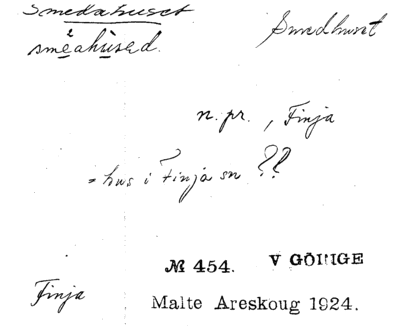 Smedahuset
Smedhuset
smeahused.
n. pr., Finja
= hus i Finja sn ??
№ 454. V GÖINGE
Finja
Malte Areskoug 1924.